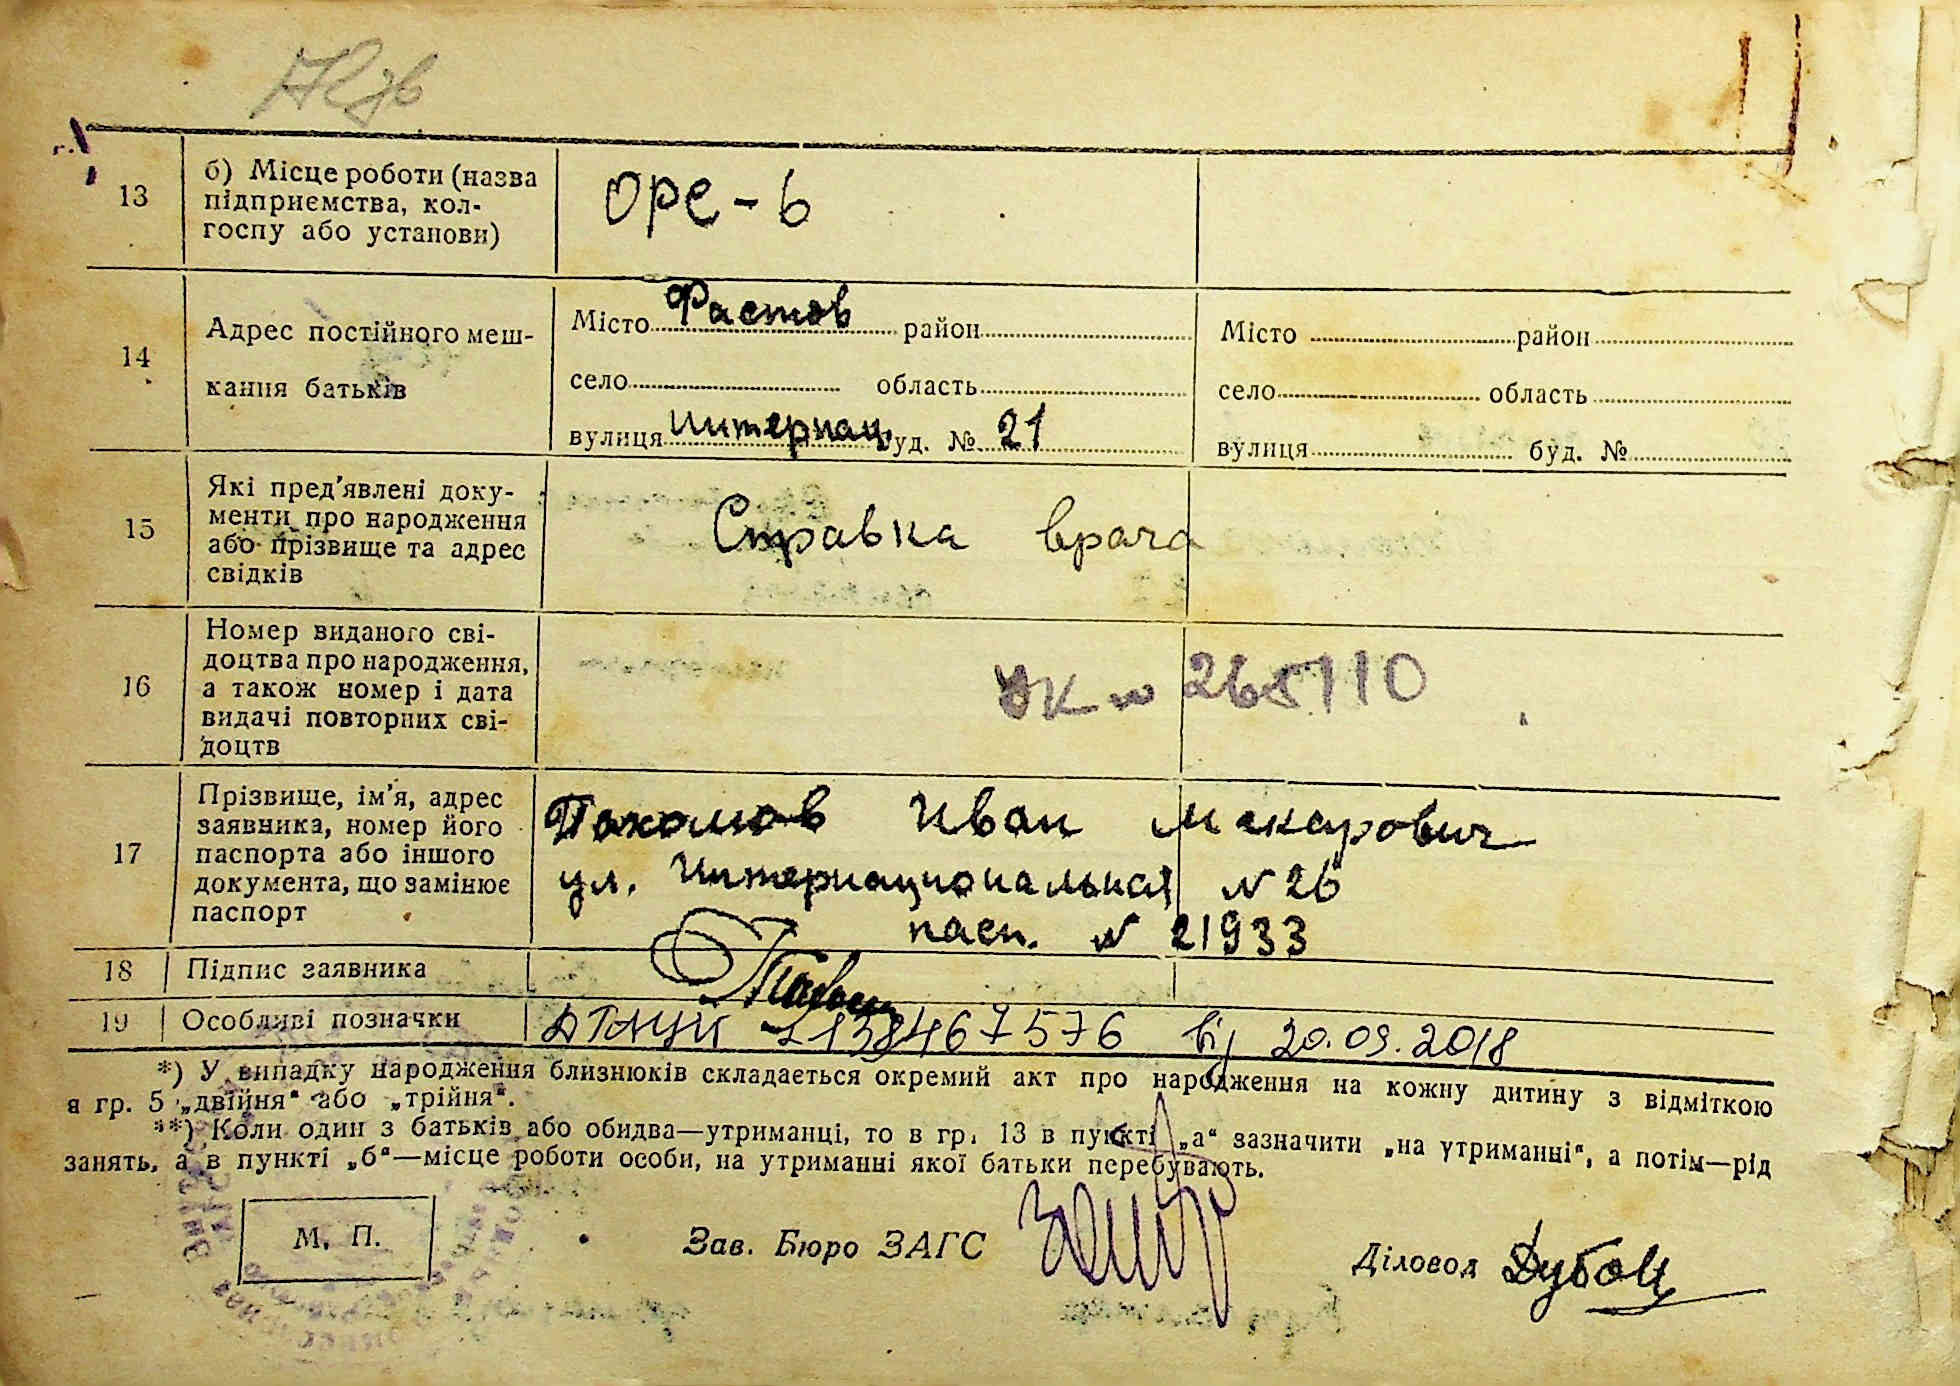 13
б) Місце роботи (назва
підприємства, кол-
госпу або установи)
ОРС-6
14
Адрес постійного меш-
кання батьків
Місто Фастов район
село область
вулиця Интернац. буд. № 21
Місто район
село область
вулиця буд. №
15
Які пред'явлені доку-
менти про народження
або прізвище та адрес
свідків
Справка врача
16
Номер виданого сві-
доцтва про народження,
а також номер і дата
видачі повторних сві-
доцтв
265110
17
Прізвище, ім'я, адрес
заявника, номер його
паспорта або іншого
документа, що замінює
паспорт
Пахомов Иван Макарович
ул. Интернациональная N 26
пасп. N 21933
18
Підпис заявника
19
Особливі позначки
від 20.09.2018
*) У випадку народження близнюків складається окремий акт про народження на кожну дитину з відміткою
в гр. 5 „двійня“ або „трійня“.
**) Коли один з батьків або обидва—утриманці, то в гр. 13 в пункті „а“ зазначити „на утриманні“, а потім—рід
занять, а в пункті „б“—місце роботи особи, на утриманні якої батьки перебувають.
М. П.
Зав. Бюро ЗАГС
Діловод